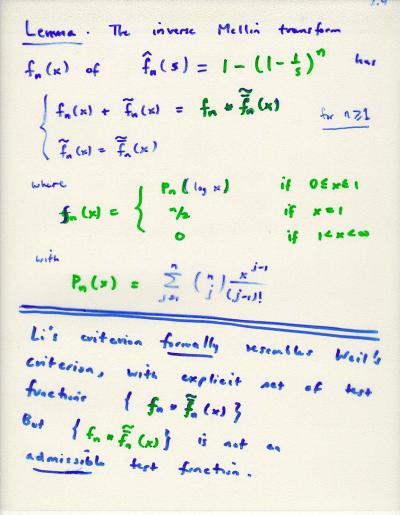 Lemma. The inverse Mellin transform
f_n(x) of f̂_n(s) = 1 - (1 - 1/s)^n has
{ f_n(x) + f̃_n(x) = f_n * f̃̄_n(x)
for n ≥ 1
f̃_n(x) = f̃̄_n(x)
where
f_n(x) = { P_n(log x) if 0 ≤ x ≤ 1
n/2 if x = 1
0 if 1 < x < ∞
with
P_n(x) = Σ_{j=1}^{n} (n j) x^{j-1}/(j-1)!
Li's criterion formally resembles Weil's
criterion, with explicit set of test
functions { f_n * f̃̄_n(x) }
But { f_n * f̃̄_n(x) } is not an
admissible test function.